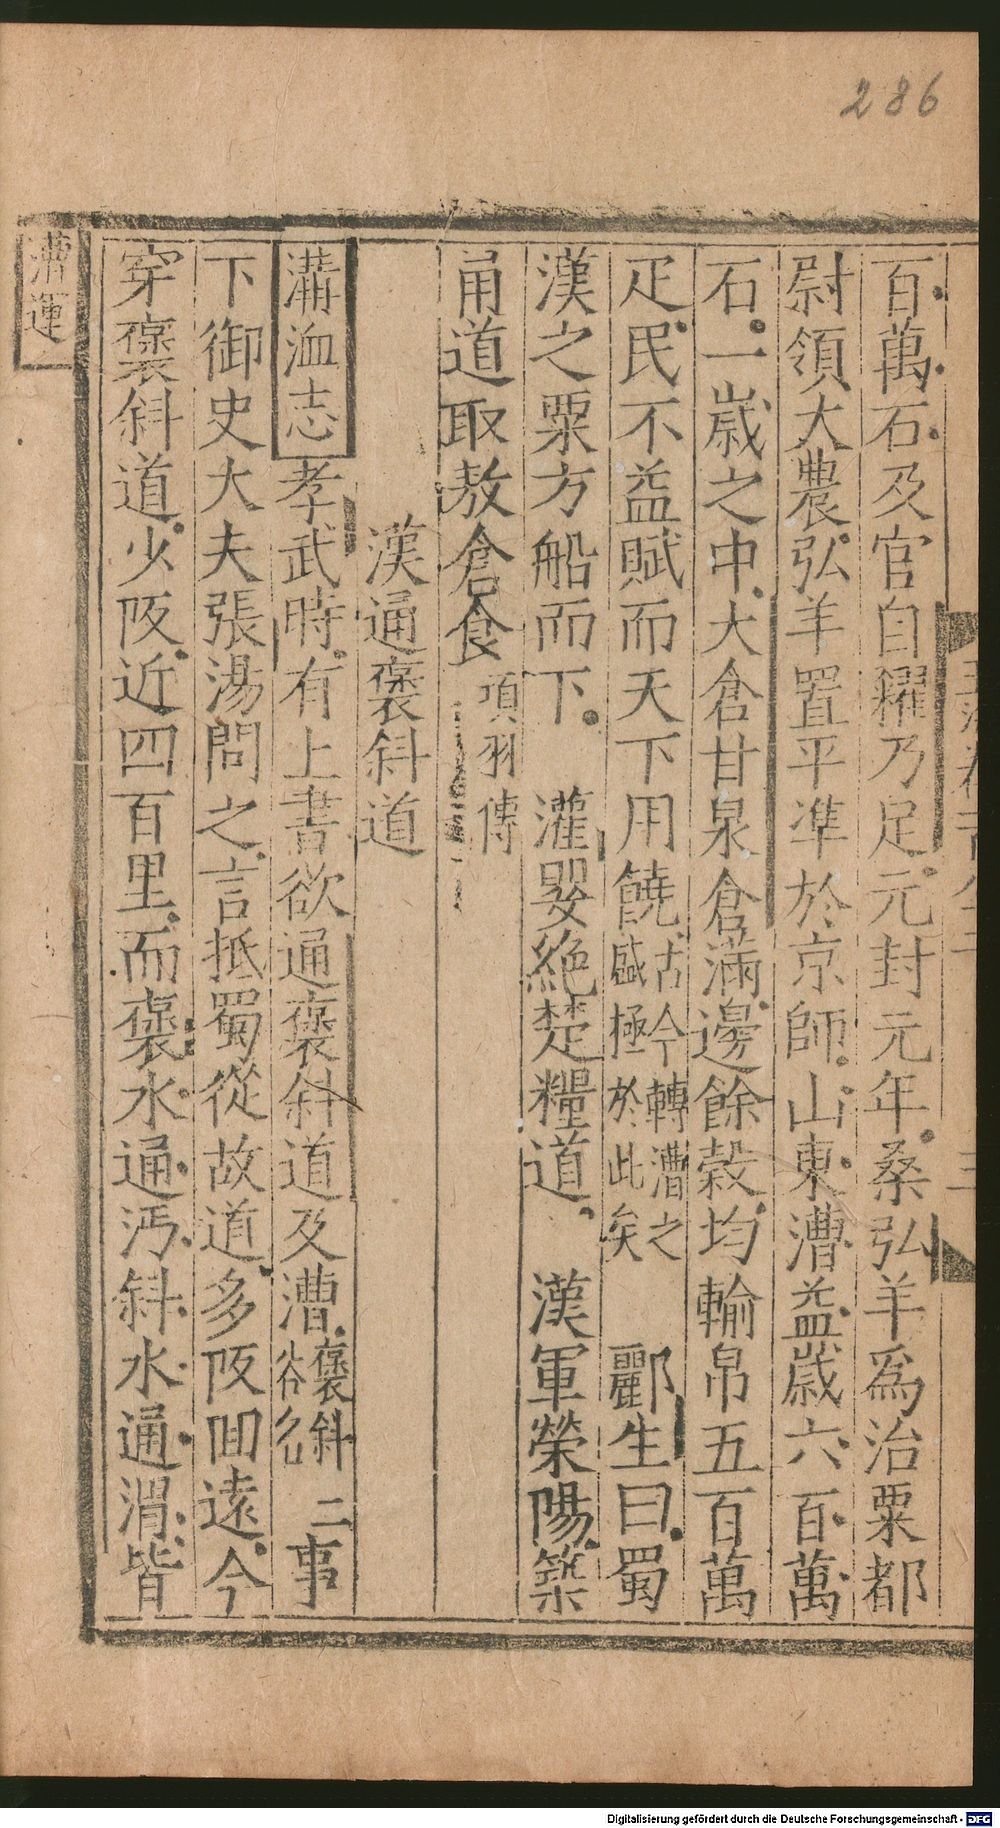 286
百萬石及官自糴乃足元封元年桑弘羊爲治粟都
尉領大農弘羊置平準於京師山東漕益歲六百萬
石一歲之中大倉甘泉倉滿邊餘穀均輸帛五百萬
疋民不益賦而天下用饒古今轉漕之盛極於此矣 酈生曰蜀
漢之粟方船而下 灌嬰絶楚糧道 漢軍榮陽築
甬道取敖倉食項羽傳
漢通褒斜道
溝洫志孝武時有上書欲通褒斜道及漕褒斜谷名二事
下御史大夫張湯問之言抵蜀從故道多阪囬遠今
穿褒斜道少阪近四百里而褒水通沔斜水通渭皆
漕運
Digitalisierung gefördert durch die Deutsche Forschungsgemeinschaft - DFG